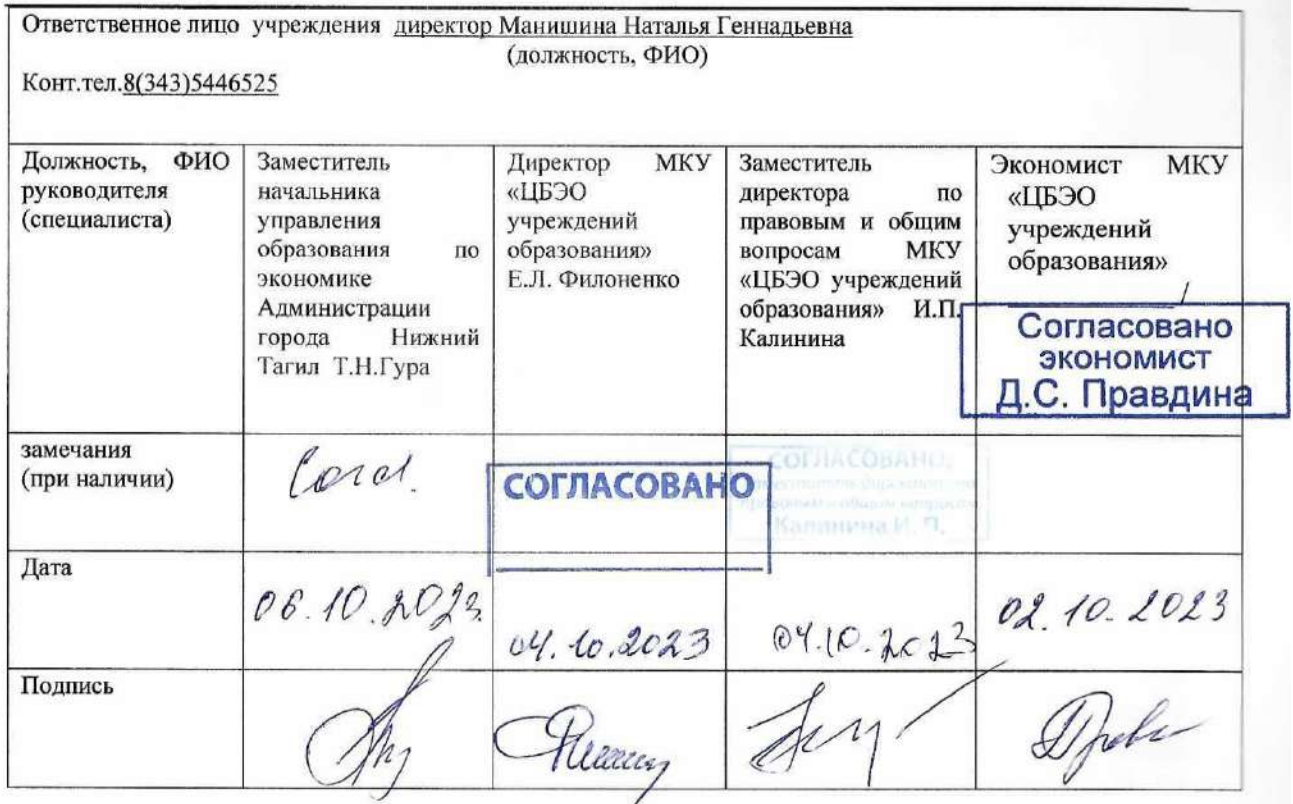 Ответственное лицо учреждения директор Манишина Наталья Геннадьевна
(должность, ФИО)
Конт.тел.8(343)5446525
Должность, ФИО
руководителя
(специалиста)
Заместитель
начальника
управления
образования по
экономике
Администрации
города Нижний
Тагил Т.Н.Гура
Директор МКУ
«ЦБЭО
учреждений
образования»
Е.Л. Филоненко
Заместитель
директора по
правовым и общим
вопросам МКУ
«ЦБЭО учреждений
образования» И.П.
Калинина
Экономист МКУ
«ЦБЭО
учреждений
образования»
Согласовано
экономист
Д.С. Правдина
замечания
(при наличии)
СОГЛАСОВАНО
СОГЛАСОВАНО
Калинина И. П.
Дата
06.10.2023
04.10.2023
04.10.2023
02.10.2023
Подпись